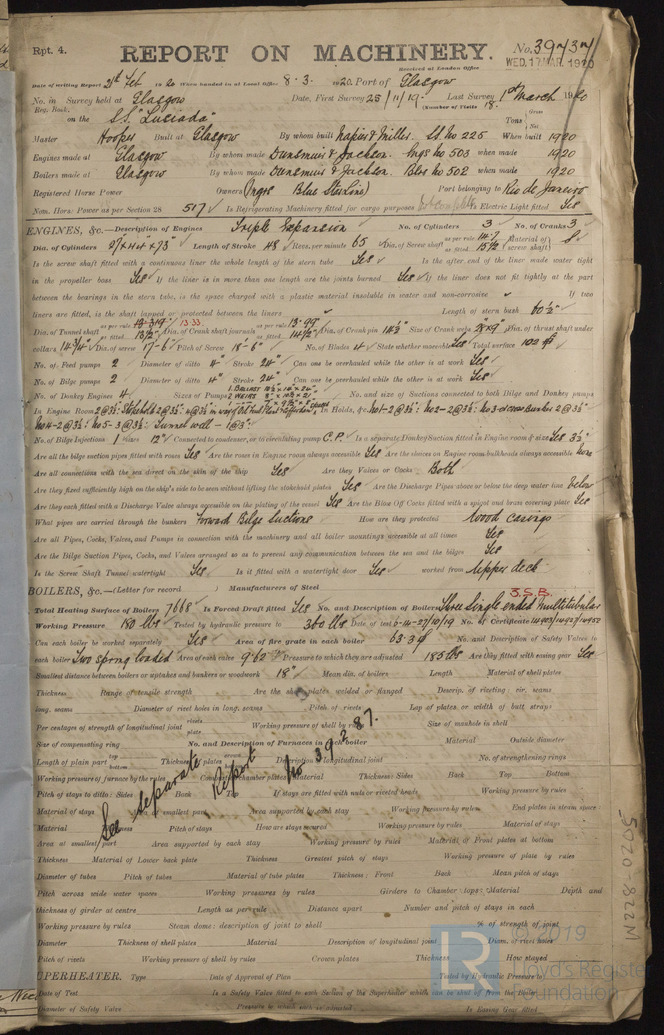 Rpt. 4.
REPORT ON MACHINERY.
No. 39737
Received at London Office
WED. 17 MAR. 1920
Date of writing Report 21st Feb 1920 When handed in at Local Office 8.3.1920 Port of Glasgow
No. in Survey held at Glasgow Date, First Survey 25/11/19 Last Survey 1st March 1920
Reg. Book. (Number of Visits 18.
on the S.S. "Luciada" Tons Gross Net
Master Hooper Built at Glasgow By whom built Napier & Miller. St. No 225 When built 1920
Engines made at Glasgow By whom made Dunsmuir & Jackson. Engs No 503 when made 1920
Boilers made at Glasgow By whom made Dunsmuir & Jackson. Blrs No 502 when made 1920
Registered Horse Power Owners (Mgrs Blue Star Line) Port belonging to Rio de Janeiro
Nom. Horse Power as per Section 28 517 Is Refrigerating Machinery fitted for cargo purposes Is Electric Light fitted Yes
ENGINES, &c.—Description of Engines Triple Expansion No. of Cylinders 3 No. of Cranks 3
Dia. of Cylinders Length of Stroke 48 Revs. per minute 65 Dia. of Screw shaft as per rule 14.7 as fitted 15 1/2 Material of screw shaft S
Is the screw shaft fitted with a continuous liner the whole length of the stern tube Yes Is the after end of the liner made water tight
in the propeller boss Yes If the liner is in more than one length are the joints burned Yes If the liner does not fit tightly at the part
between the bearings in the stern tube, is the space charged with a plastic material insoluble in water and non-corrosive " If two
liners are fitted, is the shaft lapped or protected between the liners Length of stern bush 60 1/2"
Dia. of Tunnel shaft as per rule 13.33 as fitted 13 1/2" Dia. of Crank shaft journals as per rule 13.99" as fitted 14 1/2" Dia. of Crank pin 14 1/2" Size of Crank webs 28"x9" Dia. of thrust shaft under
collars 14 3/4" Dia. of screw 17'-6" Pitch of Screw 18'-6" No. of Blades 4 State whether moveable Yes Total surface 102 sq ft
No. of Feed pumps 2 Diameter of ditto 4" Stroke 24" Can one be overhauled while the other is at work Yes
No. of Bilge pumps 2 Diameter of ditto 4" Stroke 24" Can one be overhauled while the other is at work Yes
No. of Donkey Engines 4 Sizes of Pumps No. and size of Suctions connected to both Bilge and Donkey pumps
In Engine Room In Holds, &c. No1-2@3½" No2-2@3½" No3 & cross Bunker 2@3½"
No4-2@3½" No5-3@3½" Tunnel well - 1@3"
No. of Bilge Injections 1 sizes 12" Connected to condenser, or to circulating pump C.P. Is a separate Donkey Suction fitted in Engine room & size Yes 3½"
Are all the bilge suction pipes fitted with roses Yes Are the roses in Engine room always accessible Yes Are the sluices on Engine room bulkheads always accessible None
Are all connections with the sea direct on the skin of the ship Yes Are they Valves or Cocks Both
Are they fixed sufficiently high on the ship's side to be seen without lifting the stokehold plates Yes Are the Discharge Pipes above or below the deep water line below
Are they each fitted with a Discharge Valve always accessible on the plating of the vessel Yes Are the Blow Off Cocks fitted with a spigot and brass covering plate Yes
What pipes are carried through the bunkers Forward Bilge Suctions How are they protected Wood casings
Are all Pipes, Cocks, Valves, and Pumps in connection with the machinery and all boiler mountings accessible at all times Yes
Are the Bilge Suction Pipes, Cocks, and Valves arranged so as to prevent any communication between the sea and the bilges Yes
Is the Screw Shaft Tunnel watertight Yes Is it fitted with a watertight door Yes worked from Upper deck
BOILERS, &c.—(Letter for record ) Manufacturers of Steel
3.S.B.
Total Heating Surface of Boilers 7668 Is Forced Draft fitted Yes No. and Description of Boilers Three Single ended Multitubular
Working Pressure 180 lbs Tested by hydraulic pressure to 360 lbs Date of test 6-14-27/10/19 No. of Certificate 14903/14927/14952
Can each boiler be worked separately Yes Area of fire grate in each boiler 63.3 sq No. and Description of Safety Valves to
each boiler Two Spring loaded Area of each valve 9.62 Pressure to which they are adjusted 185 lbs Are they fitted with easing gear Yes
Smallest distance between boilers or uptakes and bunkers or woodwork 18" Mean dia. of boilers Length Material of shell plates
Thickness Range of tensile strength Are the shell plates welded or flanged Descrip. of riveting: cir. seams
long. seams Diameter of rivet holes in long. seams Pitch of rivets Lap of plates or width of butt straps
Per centages of strength of longitudinal joint rivets plate Working pressure of shell by rules Size of manhole in shell
Size of compensating ring No. and Description of Furnaces in each boiler Material Outside diameter
Length of plain part top bottom Thickness of plates crown bottom Description of longitudinal joint No. of strengthening rings
Working pressure of furnace by the rules Combustion chamber plates: Material Thickness: Sides Back Top Bottom
Pitch of stays to ditto: Sides Back Top If stays are fitted with nuts or riveted heads Working pressure by rules
Material of stays Area at smallest part Area supported by each stay Working pressure by rules End plates in steam space:
Material Thickness Pitch of stays How are stays secured Working pressure by rules Material of stays
Area at smallest part Area supported by each stay Working pressure by rules Material of Front plates at bottom
Thickness Material of Lower back plate Thickness Greatest pitch of stays Working pressure of plate by rules
Diameter of tubes Pitch of tubes Material of tube plates Thickness: Front Back Mean pitch of stays
Pitch across wide water spaces Working pressures by rules Girders to Chamber tops: Material Depth and
thickness of girder at centre Length as per rule Distance apart Number and pitch of stays in each
Working pressure by rules Steam dome: description of joint to shell % of strength of joint
Diameter Thickness of shell plates Material Description of longitudinal joint Diam. of rivet holes
Pitch of rivets Working pressure of shell by rules Crown plates Thickness How stayed
SUPERHEATER. Type Date of Approval of Plan Tested by Hydraulic Pressure to
Date of Test Is a Safety Valve fitted to each Section of the Superheater which can be shut off from the Boiler
Diameter of Safety Valve Pressure to which each is adjusted Is Easing Gear fitted
See separate Report No 39287.
5020-822N
LR
© 2019
Lloyd's Register
Foundation